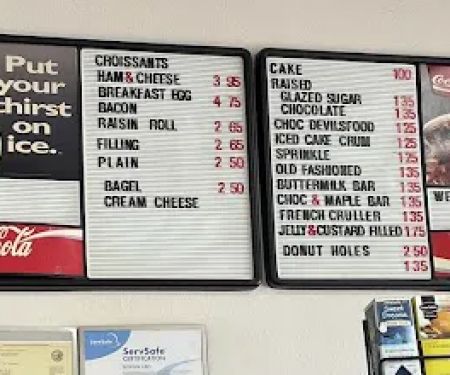 Put
your
thirst
on
ice.
Cola
CROISSANTS
HAM & CHEESE 3 95
BREAKFAST EGG 4 75
BACON
RAISIN ROLL 2 65
FILLING 2 65
PLAIN 2 50
BAGEL 2 50
CREAM CHEESE
CAKE 100
RAISED
GLAZED SUGAR 135
CHOCOLATE 135
CHOC DEVILSFOOD 125
ICED CAKE CRUM 125
SPRINKLE 125
OLD FASHIONED 135
BUTTERMILK BAR 135
CHOC & MAPLE BAR 135
FRENCH CRULLER 135
JELLY & CUSTARD FILLED 175
DONUT HOLES 2 50
1 35
WE
ServSafe
ServSafe
CERTIFICATION